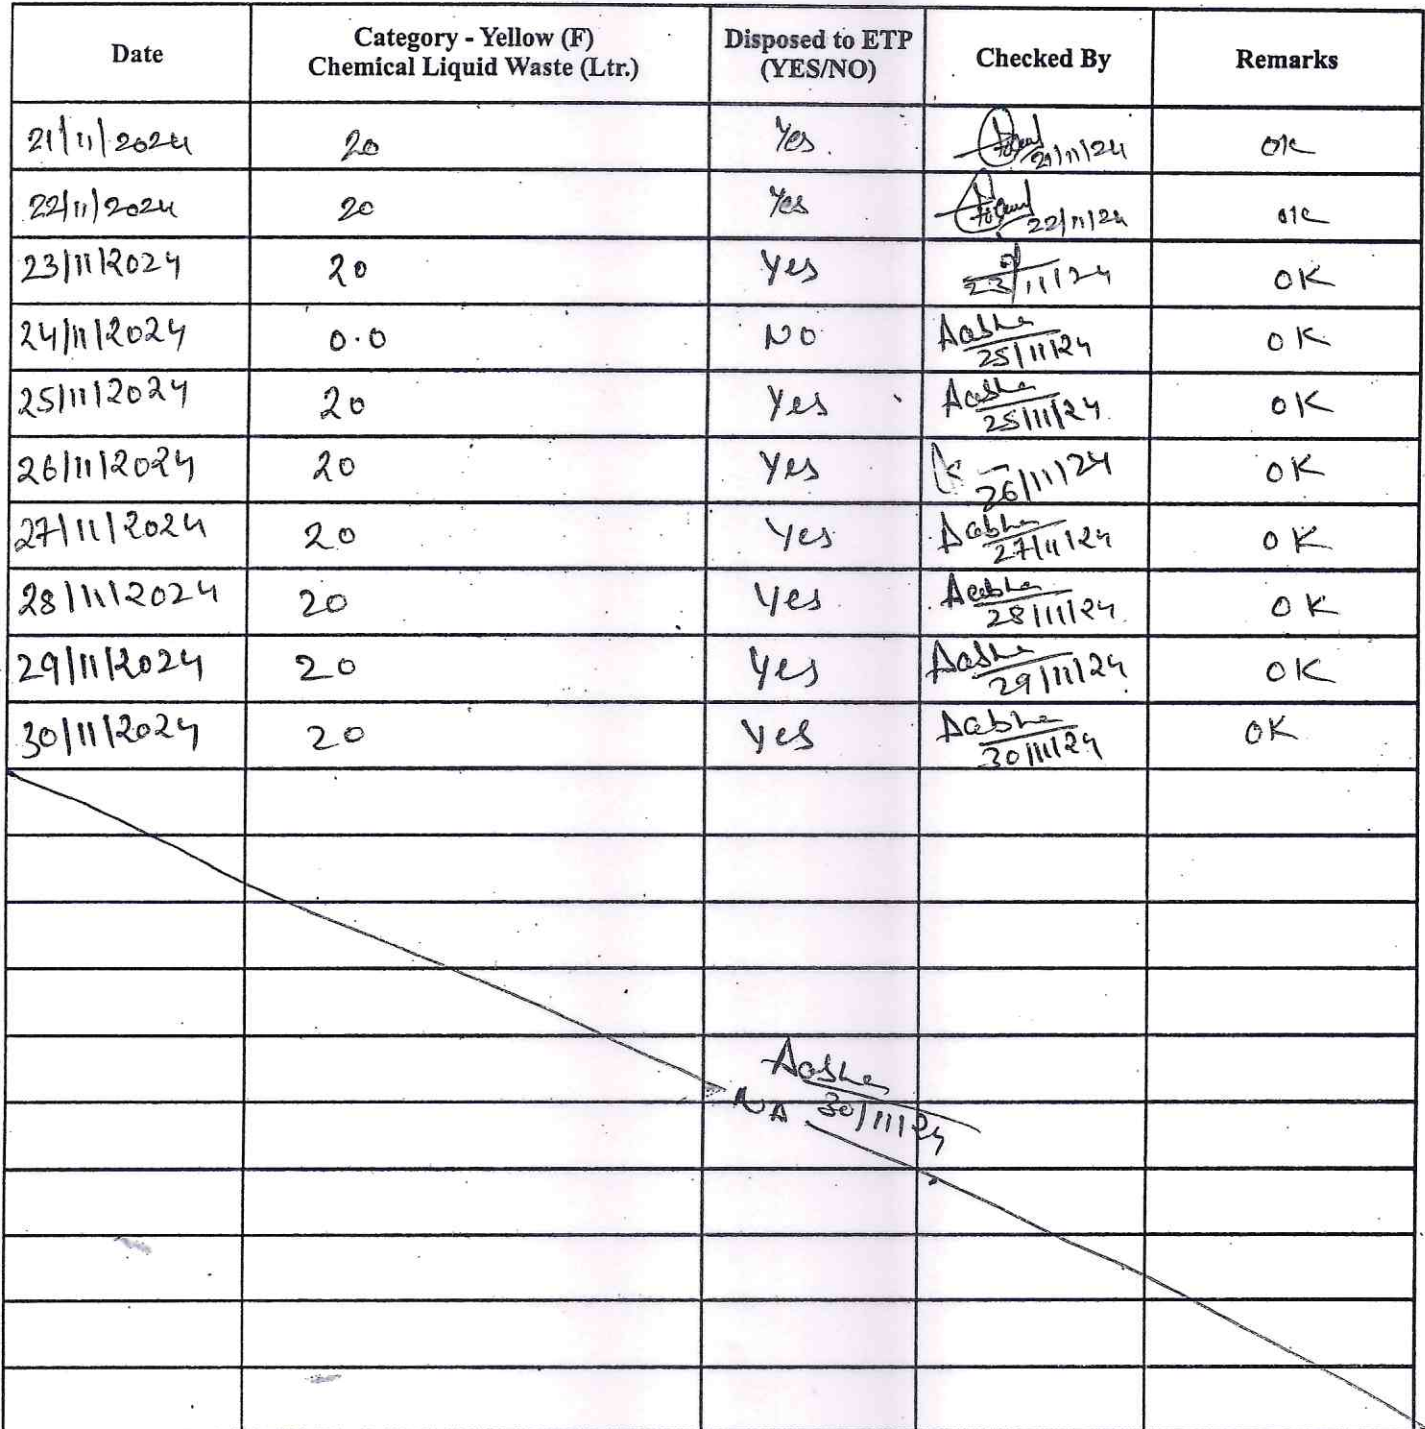 Date Category - Yellow (F) Chemical Liquid Waste (Ltr.) Disposed to ETP (YES/NO) Checked By Remarks
21/11/2024 20 Yes. 21/11/24 OK
22/11/2024 20 Yes 22/11/24 OK
23/11/2024 20 Yes 23/11/24 OK
24/11/2024 0.0 NO Aabha 25/11/24 OK
25/11/2024 20 Yes Aabha 25/11/24 OK
26/11/2024 20 Yes 26/11/24 OK
27/11/2024 20 Yes Aabha 27/11/24 OK
28/11/2024 20 Yes Aabha 28/11/24 OK
29/11/2024 20 Yes Aabha 29/11/24 OK
30/11/2024 20 Yes Aabha 30/11/24 OK
Aabha
NA 30/11/24